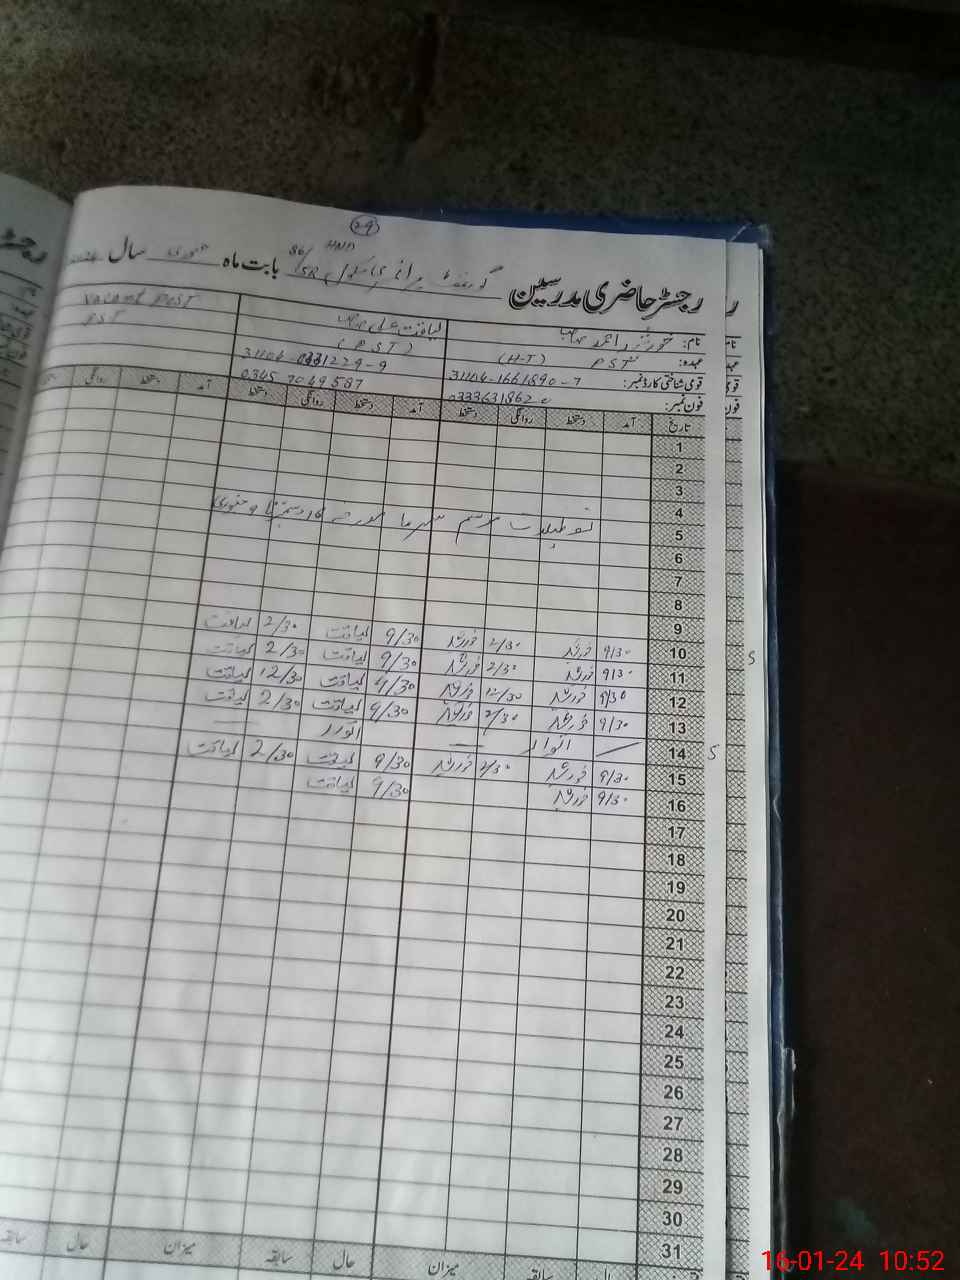 29
رجسٹر حاضری مدرسین گورنمنٹ پرائمری سکول 86/5R HND بابت ماہ جنوری سال
نام: خورشید احمد صاحب لیاقت علی صاحب Vacant Post
عہدہ: PST (H-T) (PST) PST
قومی شناختی کارڈ نمبر: 31104-1661890-7
فون نمبر: 0345 7049587
تاریخ آمد دستخط روانگی دستخط آمد دستخط روانگی دستخط آمد دستخط روانگی
1
2
3
4
5 موسم سرما
6
7
8
9
10 9/30 خورشید 2/30 خورشید 9/30 لیاقت 2/30 لیاقت
11 9/30 خورشید 2/30 خورشید 9/30 لیاقت 2/30 لیاقت
12 9/30 خورشید 12/30 خورشید 9/30 لیاقت 12/30 لیاقت
13 9/30 خورشید 2/30 خورشید 9/30 لیاقت 2/30 لیاقت
14 — اتوار — اتوار —
15 9/30 خورشید 2/30 خورشید 9/30 لیاقت 2/30 لیاقت
16 9/30 خورشید 9/30 لیاقت
17
18
19
20
21
22
23
24
25
26
27
28
29
30
31
حال سابقہ میزان حال سابقہ میزان حال سابقہ
5
5
16-01-24 10:52